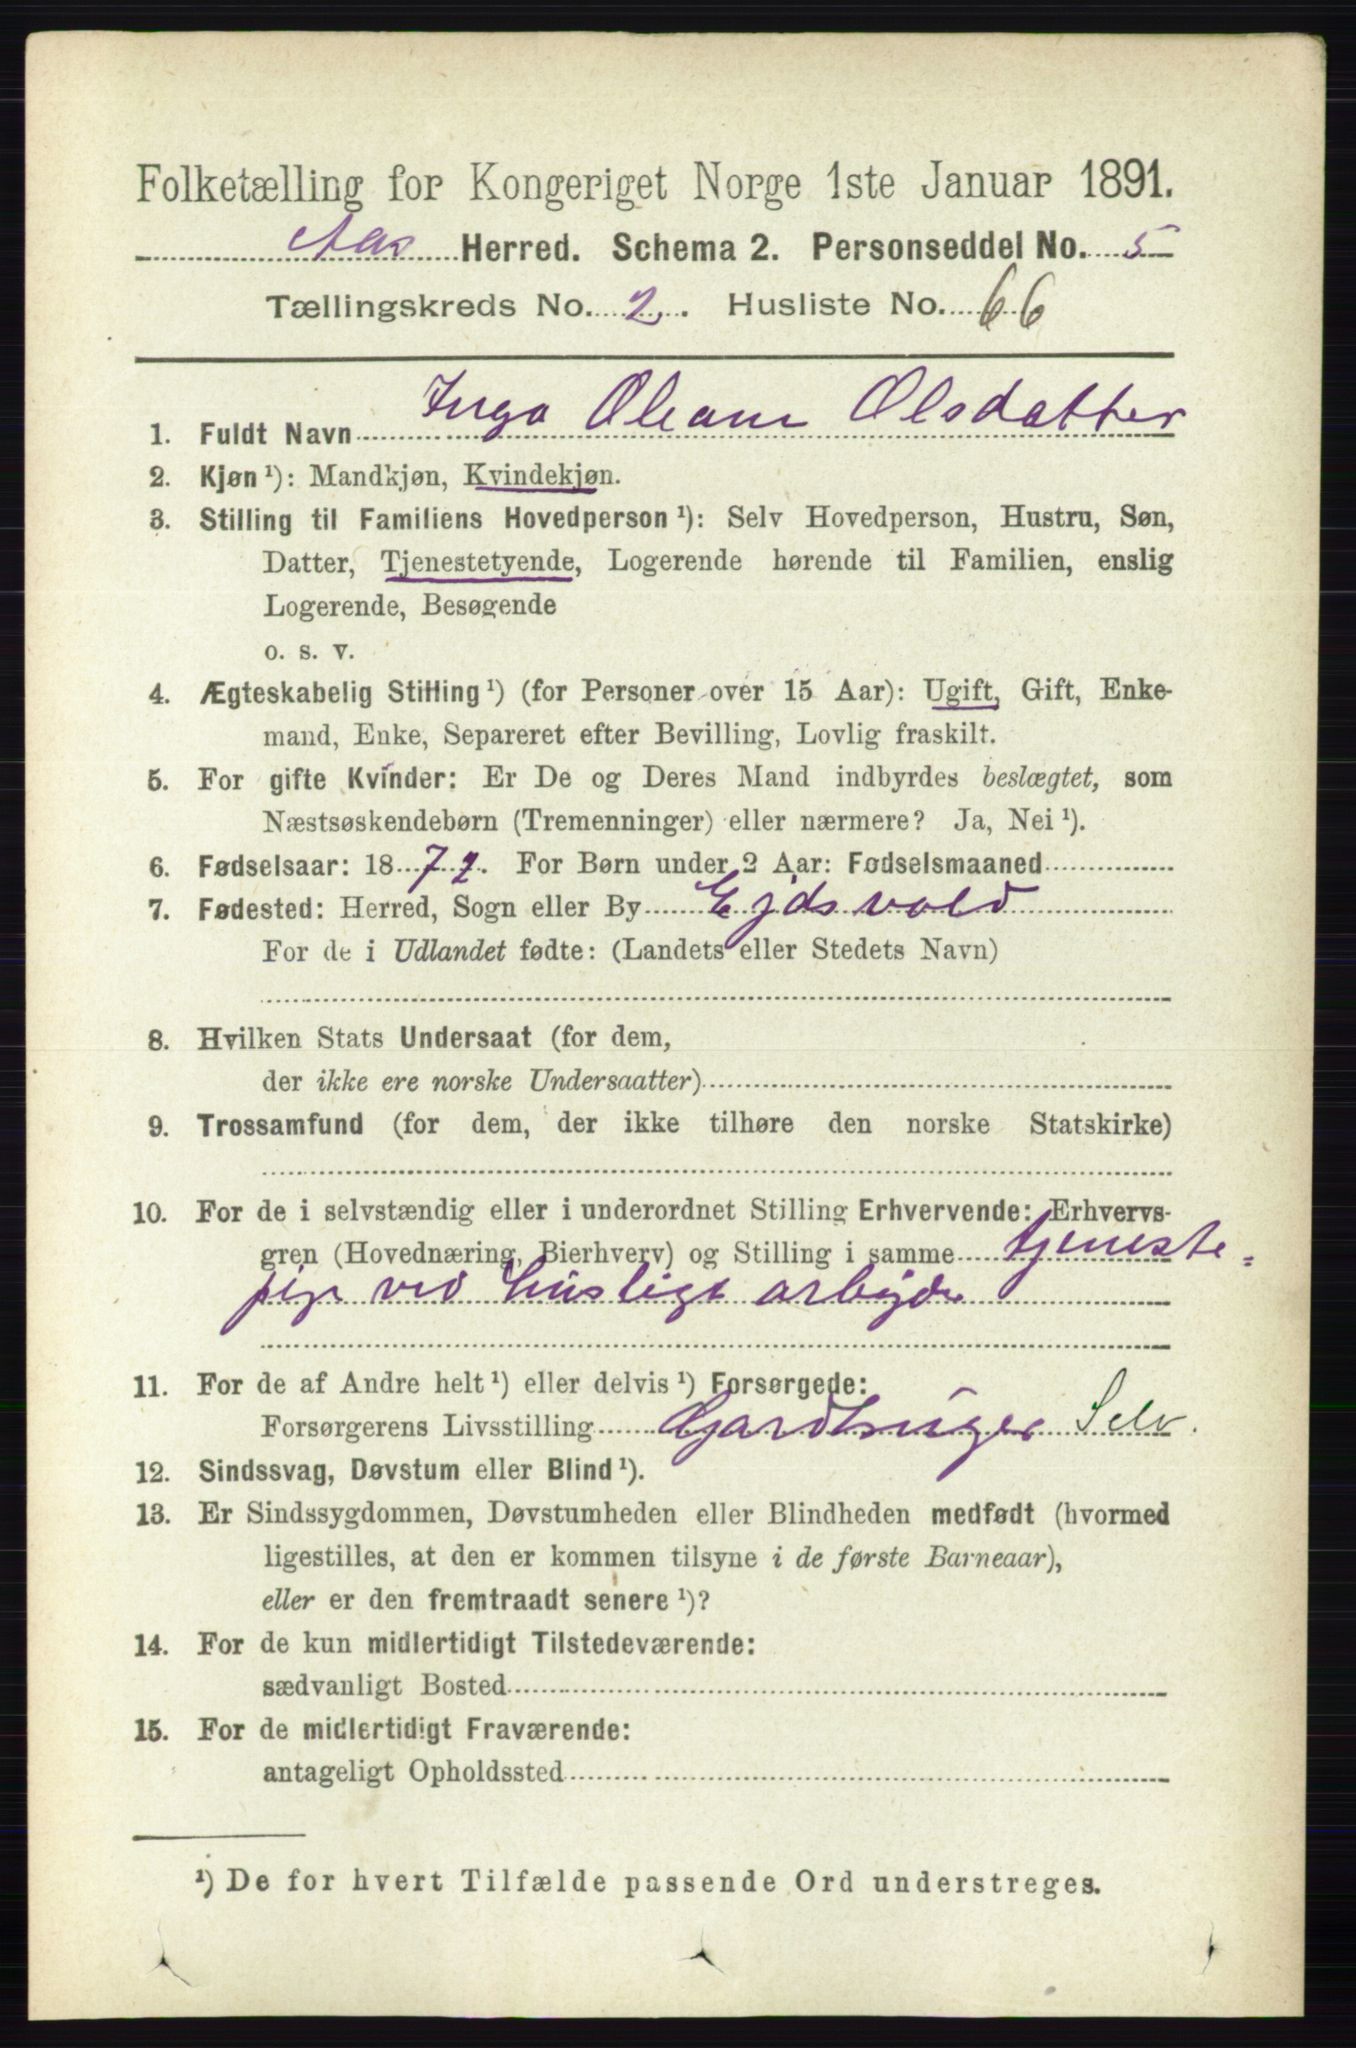 Folketælling for Kongeriget Norge 1ste Januar 1891.
Aas Herred. Schema 2. Personseddel No. 5
Tællingskreds No. 2. Husliste No. 66
1. Fuldt Navn Inga Oleane Olsdatter
2. Kjøn ¹): Mandkjøn, Kvindekjøn.
3. Stilling til Familiens Hovedperson ¹): Selv Hovedperson, Hustru, Søn,
Datter, Tjenestetyende, Logerende hørende til Familien, enslig
Logerende, Besøgende
o. s. v.
4. Ægteskabelig Stilling ¹) (for Personer over 15 Aar): Ugift, Gift, Enke-
mand, Enke, Separeret efter Bevilling, Lovlig fraskilt.
5. For gifte Kvinder: Er De og Deres Mand indbyrdes beslægtet, som
Næstsøskendebørn (Tremenninger) eller nærmere? Ja, Nei ¹).
6. Fødselsaar: 18 72. For Børn under 2 Aar: Fødselsmaaned
7. Fødested: Herred, Sogn eller By Ejdsvold
For de i Udlandet fødte: (Landets eller Stedets Navn)
8. Hvilken Stats Undersaat (for dem,
der ikke ere norske Undersaatter)
9. Trossamfund (for dem, der ikke tilhøre den norske Statskirke)
10. For de i selvstændig eller i underordnet Stilling Erhvervende: Erhvervs-
gren (Hovednæring, Bierhverv) og Stilling i samme tjeneste=
pige ved huslige arbejde
11. For de af Andre helt ¹) eller delvis ¹) Forsørgede:
Forsørgerens Livsstilling Gardbruger Selv.
12. Sindssvag, Døvstum eller Blind ¹).
13. Er Sindssygdommen, Døvstumheden eller Blindheden medfødt (hvormed
ligestilles, at den er kommen tilsyne i de første Barneaar),
eller er den fremtraadt senere ¹)?
14. For de kun midlertidigt Tilstedeværende:
sædvanligt Bosted
15. For de midlertidigt Fraværende:
antageligt Opholdssted
¹) De for hvert Tilfælde passende Ord understreges.